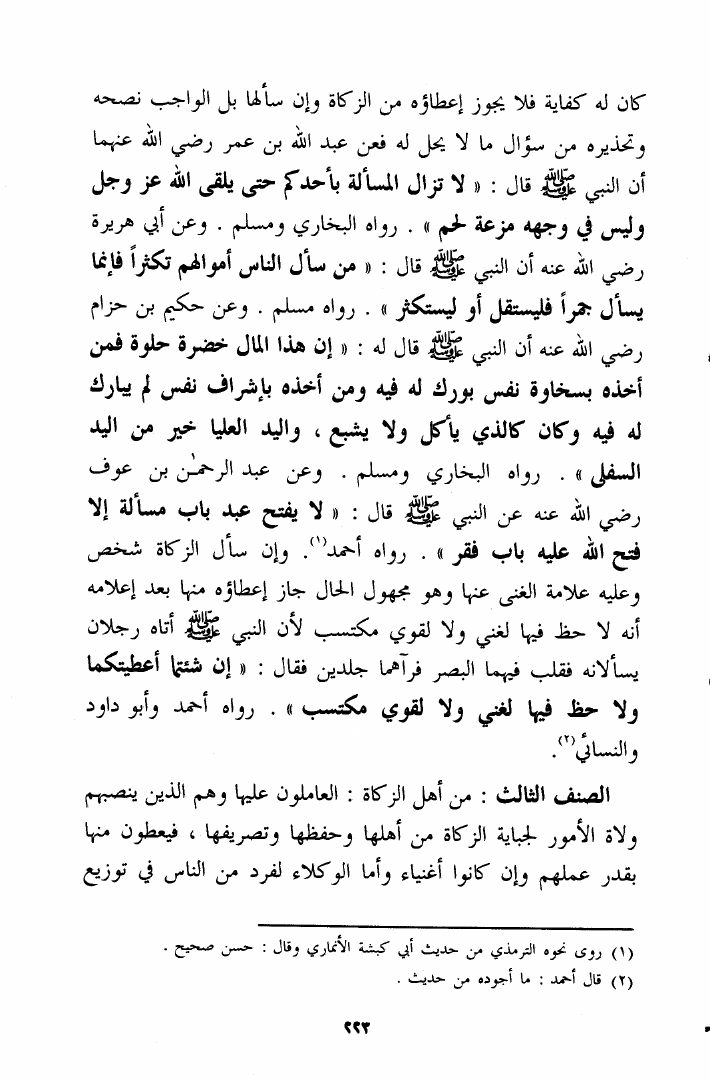 كان له كفاية فلا يجوز إعطاؤه من الزكاة وإن سألها بل الواجب نصحه
وتحذيره من سؤال ما لا يحل له فعن عبد الله بن عمر رضي الله عنهما
أن النبي ﷺ قال : « لا تزال المسألة بأحدكم حتى يلقى الله عز وجل
وليس في وجهه مزعة لحم » . رواه البخاري ومسلم . وعن أبي هريرة
رضي الله عنه أن النبي ﷺ قال : « من سأل الناس أموالهم تكثراً فإنما
يسأل جمراً فليستقل أو ليستكثر » . رواه مسلم . وعن حكيم بن حزام
رضي الله عنه أن النبي ﷺ قال له : « إن هذا المال خضرة حلوة فمن
أخذه بسخاوة نفس بورك له فيه ومن أخذه بإشراف نفس لم يبارك
له فيه وكان كالذي يأكل ولا يشبع ، واليد العليا خير من اليد
السفلى » . رواه البخاري ومسلم . وعن عبد الرحمٰن بن عوف
رضي الله عنه عن النبي ﷺ قال : « لا يفتح عبد باب مسألة إلا
فتح الله عليه باب فقر » . رواه أحمد(١). وإن سأل الزكاة شخص
وعليه علامة الغنى عنها وهو مجهول الحال جاز إعطاؤه منها بعد إعلامه
أنه لا حظ فيها لغني ولا لقوي مكتسب لأن النبي ﷺ أتاه رجلان
يسألانه فقلب فيهما البصر فرآهما جلدين فقال : « إن شئتما أعطيتكما
ولا حظ فيها لغني ولا لقوي مكتسب » . رواه أحمد وأبو داود
والنسائي(٢).
الصنف الثالث : من أهل الزكاة : العاملون عليها وهم الذين ينصبهم
ولاة الأمور لجباية الزكاة من أهلها وحفظها وتصريفها ، فيعطون منها
بقدر عملهم وإن كانوا أغنياء وأما الوكلاء لفرد من الناس في توزيع
(١) روى نحوه الترمذي من حديث أبي كبشة الأنماري وقال : حسن صحيح .
(٢) قال أحمد : ما أجوده من حديث .
٢٢٣